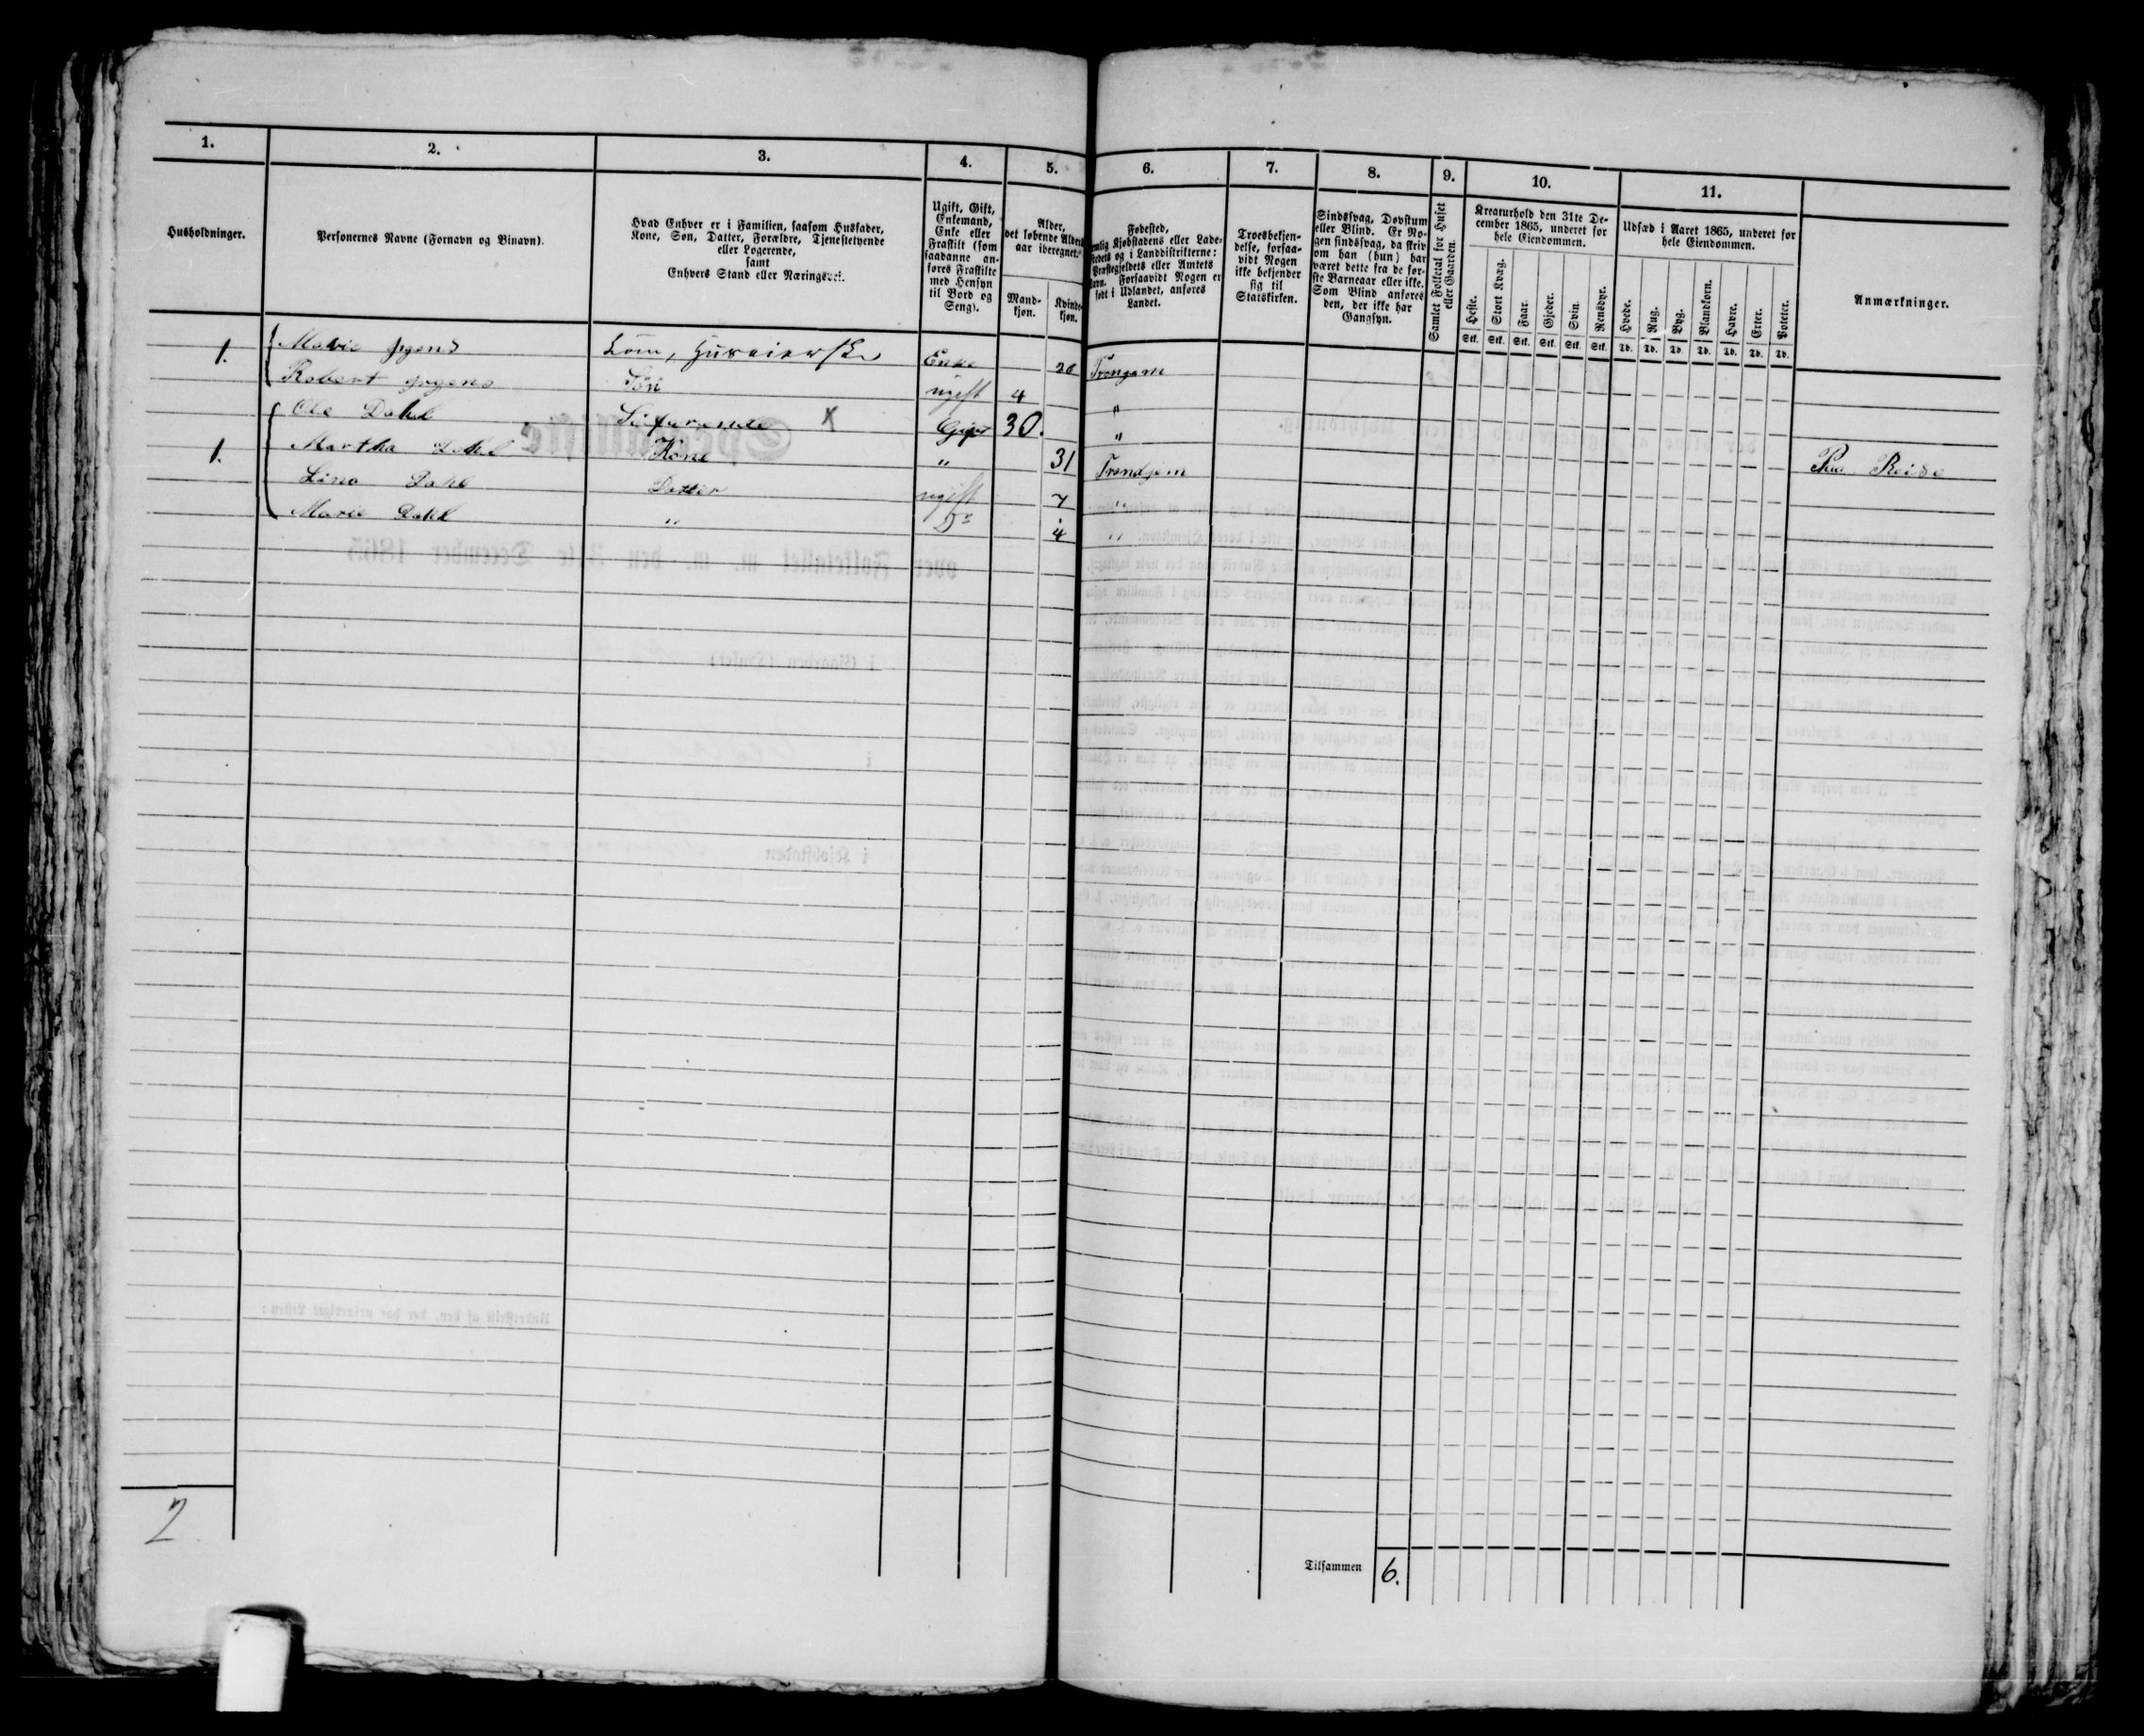 1. 2. 3. 4. 5. 6. 7. 8. 9. 10. 11.
Husholdninger.
Personernes Navne (Fornavn og Binavn).
Hvad Enhver er i Familien, saasom Husfader,
Kone, Søn, Datter, Forældre, Tjenestetyende
eller Logerende,
samt
Enhvers Stand eller Næringsvei.
Ugift, Gift,
Enkemand,
Enke eller
Fraskilt (som
saadanne an-
føres Fraskilte
med Hensyn
til Bord og
Seng).
Alder,
det løbende Alders-
aar iberegnet.
Mand-
kjøn.
Kvinde-
kjøn.
Fødested,
nemlig Kjøbstadens eller Lade-
stedets og i Landdistrikterne:
Præstegjeldets eller Amtets
Navn. Forsaavidt Nogen er
født i Udlandet, anføres
Landet.
Troesbekjen-
delse, forsaa-
vidt Nogen
ikke bekjender
sig til
Statskirken.
Sindssvag, Døvstum
eller Blind. Er No-
gen sindssvag, da skriv
om han (hun) har
været dette fra de før-
ste Barneaar eller ikke.
Som Blind anføres
den, der ikke har
Gangsyn.
Samlet Folketal for Huset
eller Gaarden.
Kreaturhold den 31te De-
cember 1865, underet for
hele Eiendommen.
Heste. Stort Kvæg. Faar. Gjeder. Svin. Rensdyr.
Stk. Stk. Stk. Stk. Stk. Stk.
Udsæd i Aaret 1865, underet for
hele Eiendommen.
Hvede. Rug. Byg. Blandkorn. Havre. Erter. Poteter.
Td. Td. Td. Td. Td. Td. Td.
Anmærkninger.
1. Marie Enke 28
Robert Søn ugift 4 "
Ole Dahl X Gift 30. "
1. Martha Dahl Kone " 31 Trondjem Paa Reise
Lina Dahl Datter ugift 7 "
Marie Dahl " Do 4 "
2
Tilsammen 6.